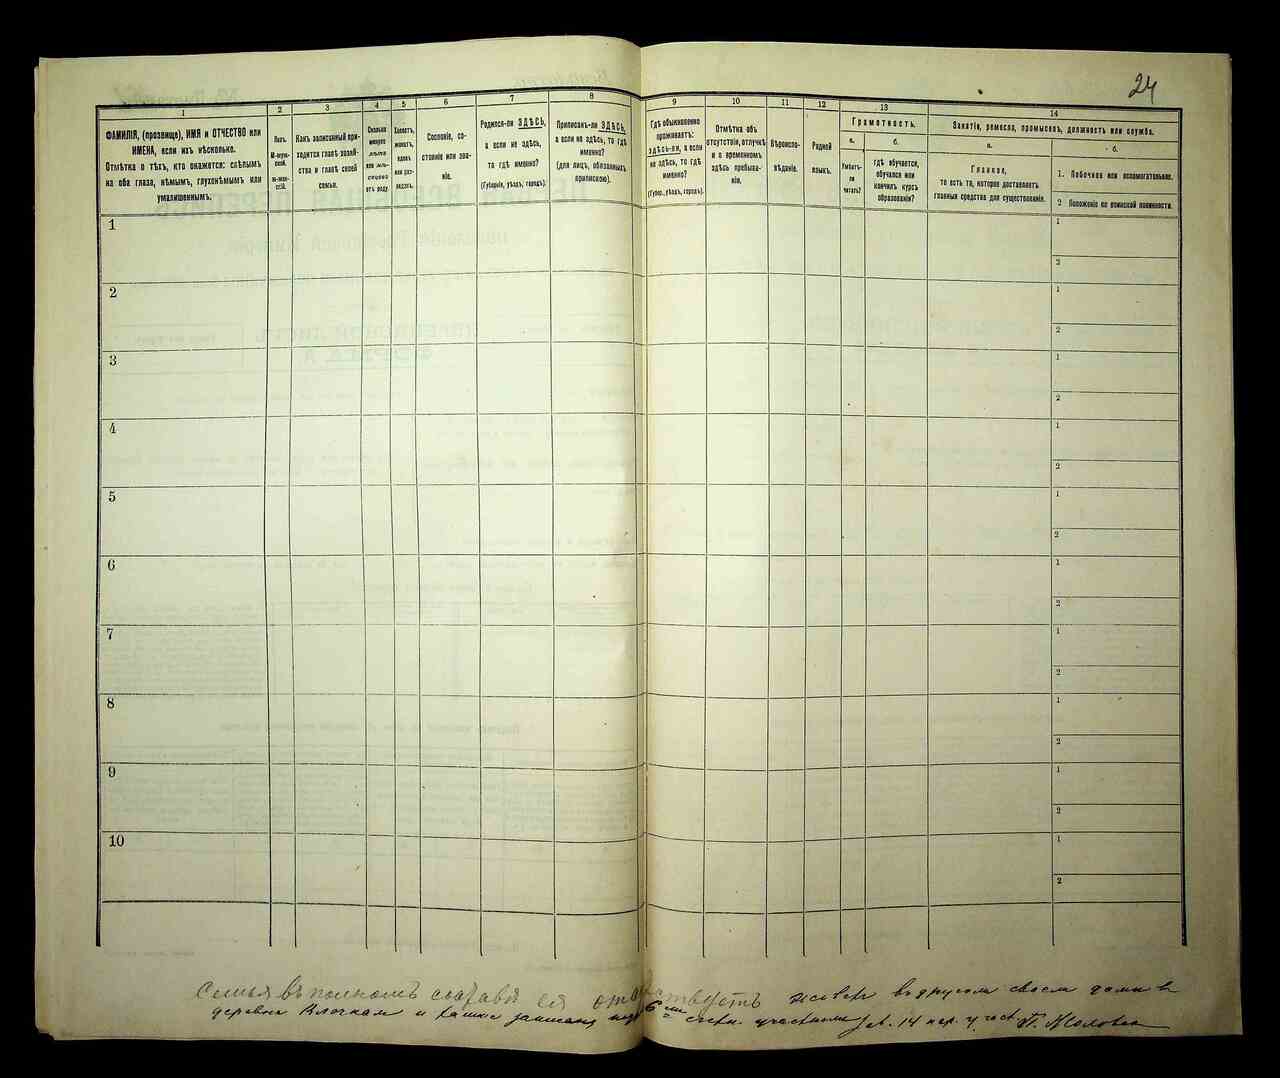 24
1 2 3 4 5 6 7 8 9 10 11 12 13 14
ФАМИЛІЯ, (прозвище), ИМЯ и ОТЧЕСТВО или
ИМЕНА, если ихъ нѣсколько.
Отмѣтка о тѣхъ, кто окажется: слѣпымъ
на оба глаза, нѣмымъ, глухонѣмымъ или
умалишеннымъ.
Полъ.
М-муж-
ской.
ж-жен-
скій.
Какъ записанный при-
ходится главѣ хозяй-
ства и главѣ своей
семьи.
Сколько
минуло
лѣтъ
или мѣ-
сяцевъ
отъ роду
Холостъ,
женатъ,
вдовъ
или раз-
веденъ.
Сословіе, со-
стояніе или зва-
ніе.
Родился-ли ЗДѢСЬ,
а если не здѣсь,
то гдѣ именно?
(Губернія, уѣздъ, городъ).
Приписанъ-ли ЗДѢСЬ,
а если не здѣсь, то гдѣ
именно?
(для лицъ, обязанныхъ
припискою).
Гдѣ обыкновенно
проживаетъ:
здѣсь-ли, а если
не здѣсь, то гдѣ
именно?
(Губер., уѣздъ, городъ).
Отмѣтка объ
отсутствіи, отлучкѣ
и о временномъ
здѣсь пребыва-
ніи.
Вѣроиспо-
вѣданіе.
Родной
языкъ.
Грамотность.
а.
Умѣетъ-
ли
читать?
б.
гдѣ обучается,
обучался или
кончилъ курсъ
образованія?
Занятіе, ремесло, промыселъ, должность или служба.
а.
Главное,
то есть то, которое доставляетъ
главныя средства для существованія.
б.
1. Побочное или вспомогательное.
2 Положеніе по воинской повинности.
1 1
2
2 1
2
3 1
2
4 1
2
5 1
2
6 1
2
7 1
2
8 1
2
9 1
2
10 1
2
Семья въ полномъ составѣ ея отсутствуетъ живетъ въ другомъ своемъ домѣ въ
деревнѣ и записана 6 счетн. участкомъ 14